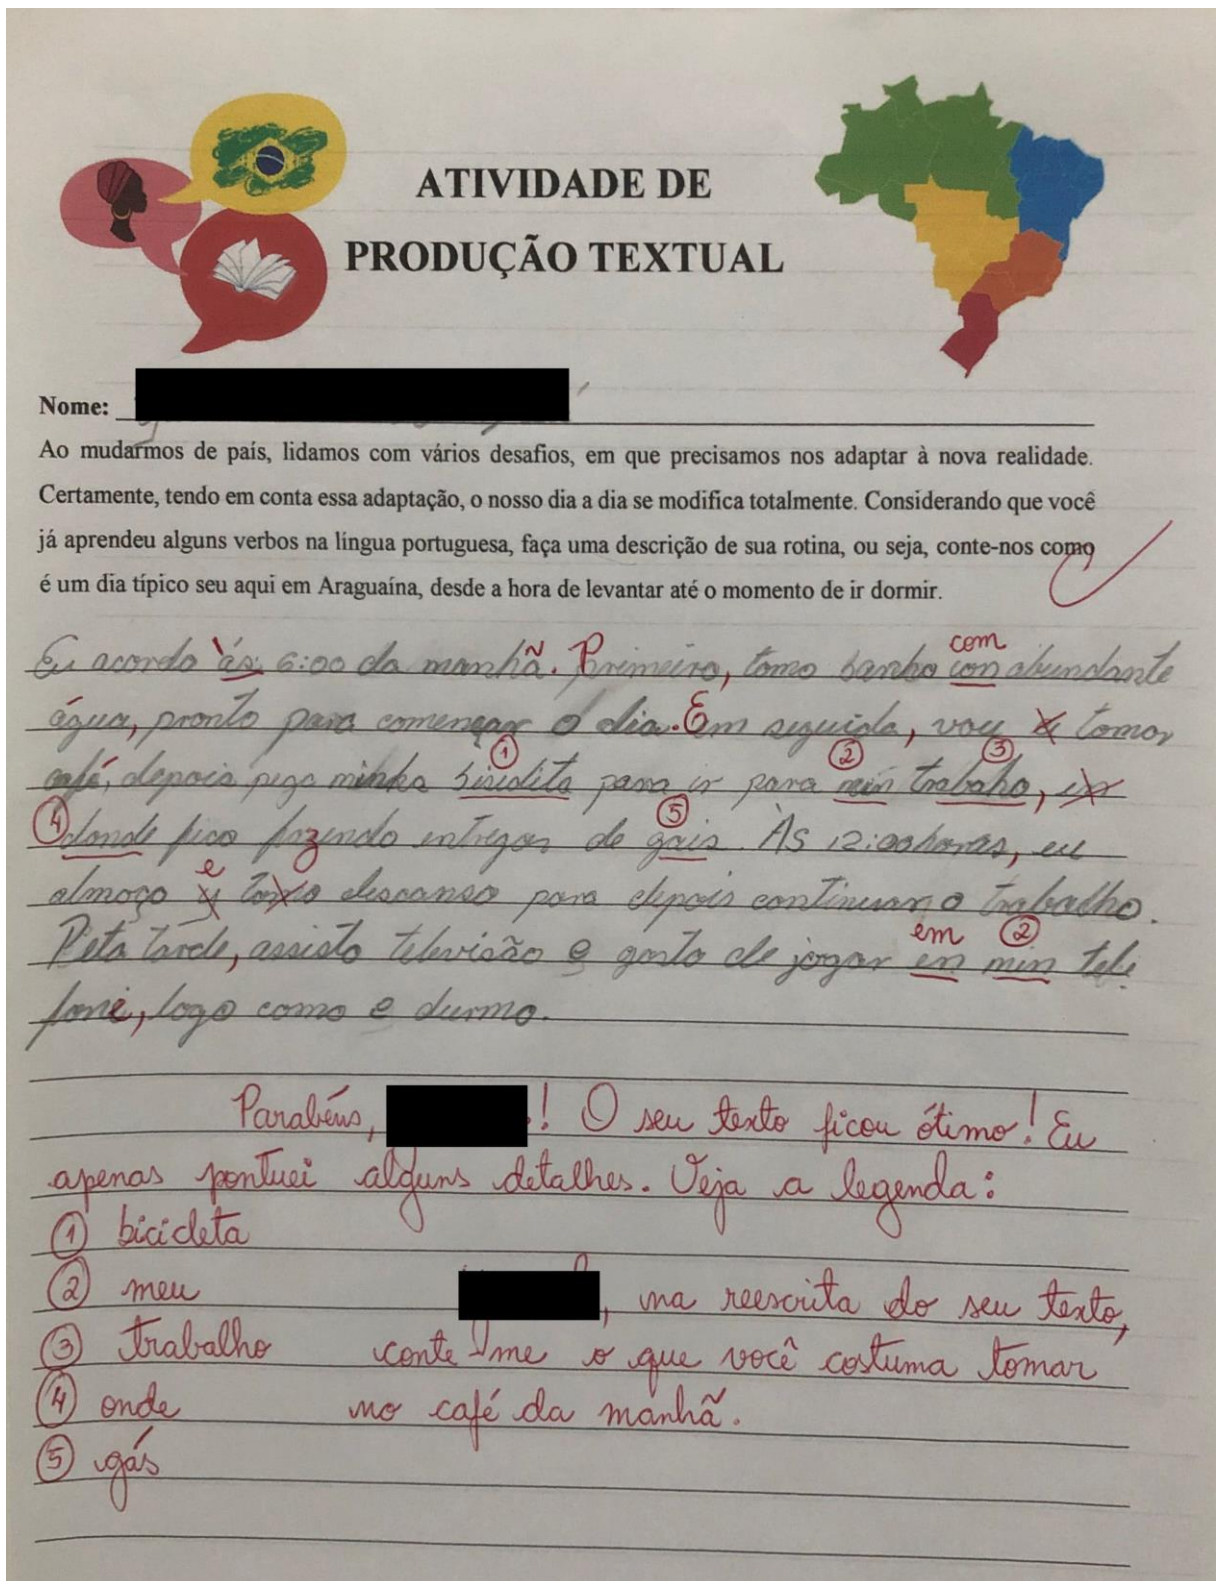 ATIVIDADE DE
PRODUÇÃO TEXTUAL
Nome:
Ao mudarmos de país, lidamos com vários desafios, em que precisamos nos adaptar à nova realidade.
Certamente, tendo em conta essa adaptação, o nosso dia a dia se modifica totalmente. Considerando que você
já aprendeu alguns verbos na língua portuguesa, faça uma descrição de sua rotina, ou seja, conte-nos como
é um dia típico seu aqui em Araguaína, desde a hora de levantar até o momento de ir dormir.
com
Eu acordo às 6:00 da manhã. Primeiro, tomo banho con abundante
água, pronto para començar o dia. Em seguida, vou a tomar
1 2 3
café, depois pego minha bisicdita para ir para min trabaho,
4 5
donde fico fazendo entregas de gais. As 12:00 horas, eu
e
almoço y tomo descanso para depois continuar o trabalho.
em 2
Peta tarde, assisto televisão e gosto de jogar en min tele
fone, logo como e durmo.
Parabéns, ! O seu texto ficou ótimo! Eu
apenas pontuei alguns detalhes. Veja a legenda:
1 bicicleta
2 meu
, na reescrita do seu texto,
3 trabalho
conte-me o que você costuma tomar
4 onde
no café da manhã.
5 gás